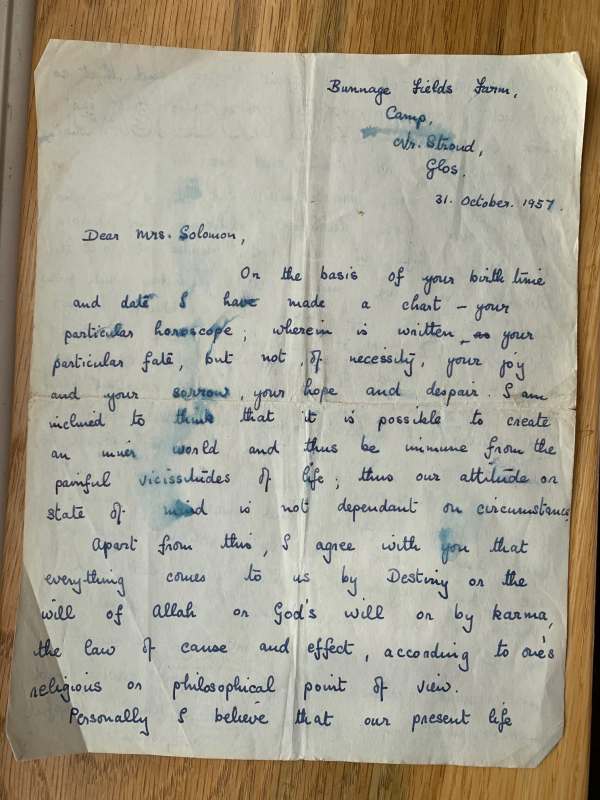 Bunnage Fields Farm,
Camp,
Nr. Stroud,
Glos.
31. October. 1957.
Dear Mrs. Solomon,
On the basis of your birth time
and date I have made a chart – your
particular horoscope; wherein is written, as your
particular fate, but not, of necessity, your joy
and your sorrow, your hope and despair. I am
inclined to think that it is possible to create
an inner world and thus be immune from the
painful vicissitudes of life; thus our attitude or
state of mind is not dependant on circumstance.
Apart from this, I agree with you that
everything comes to us by Destiny or the
will of Allah or God's will or by karma,
the law of cause and effect, according to one's
religious or philosophical point of view.
Personally I believe that our present life